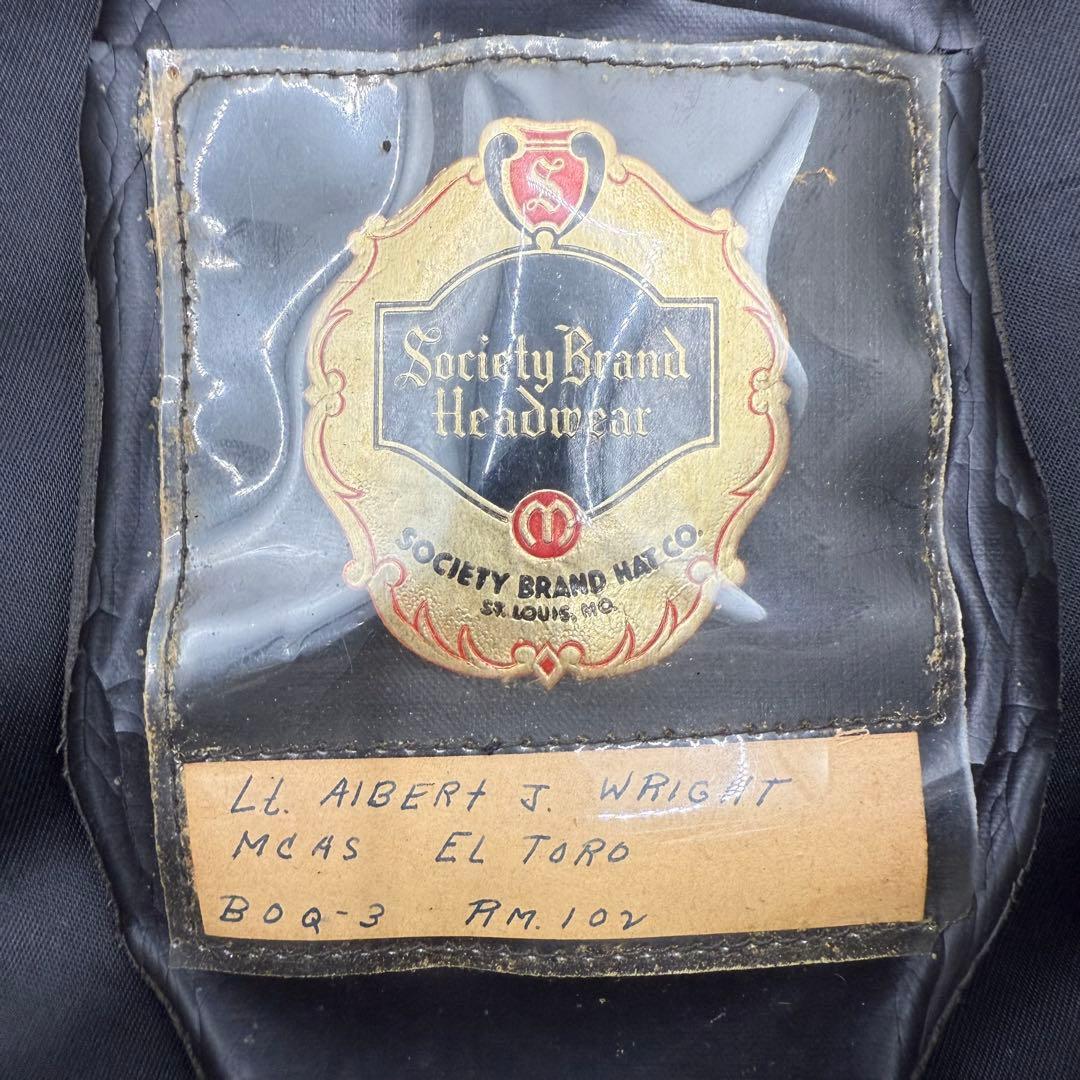 S
Society Brand
Headwear
M
SOCIETY BRAND HAT CO.
ST. LOUIS, MO.
Lt. AlBERt J. WRIGHT
MCAS EL TORO
BOQ-3 RM. 102